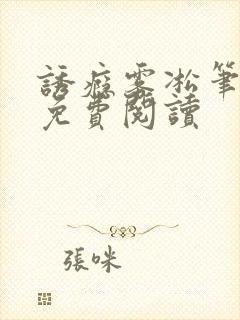 誘癮霧凇筆
免費閱讀
張咪